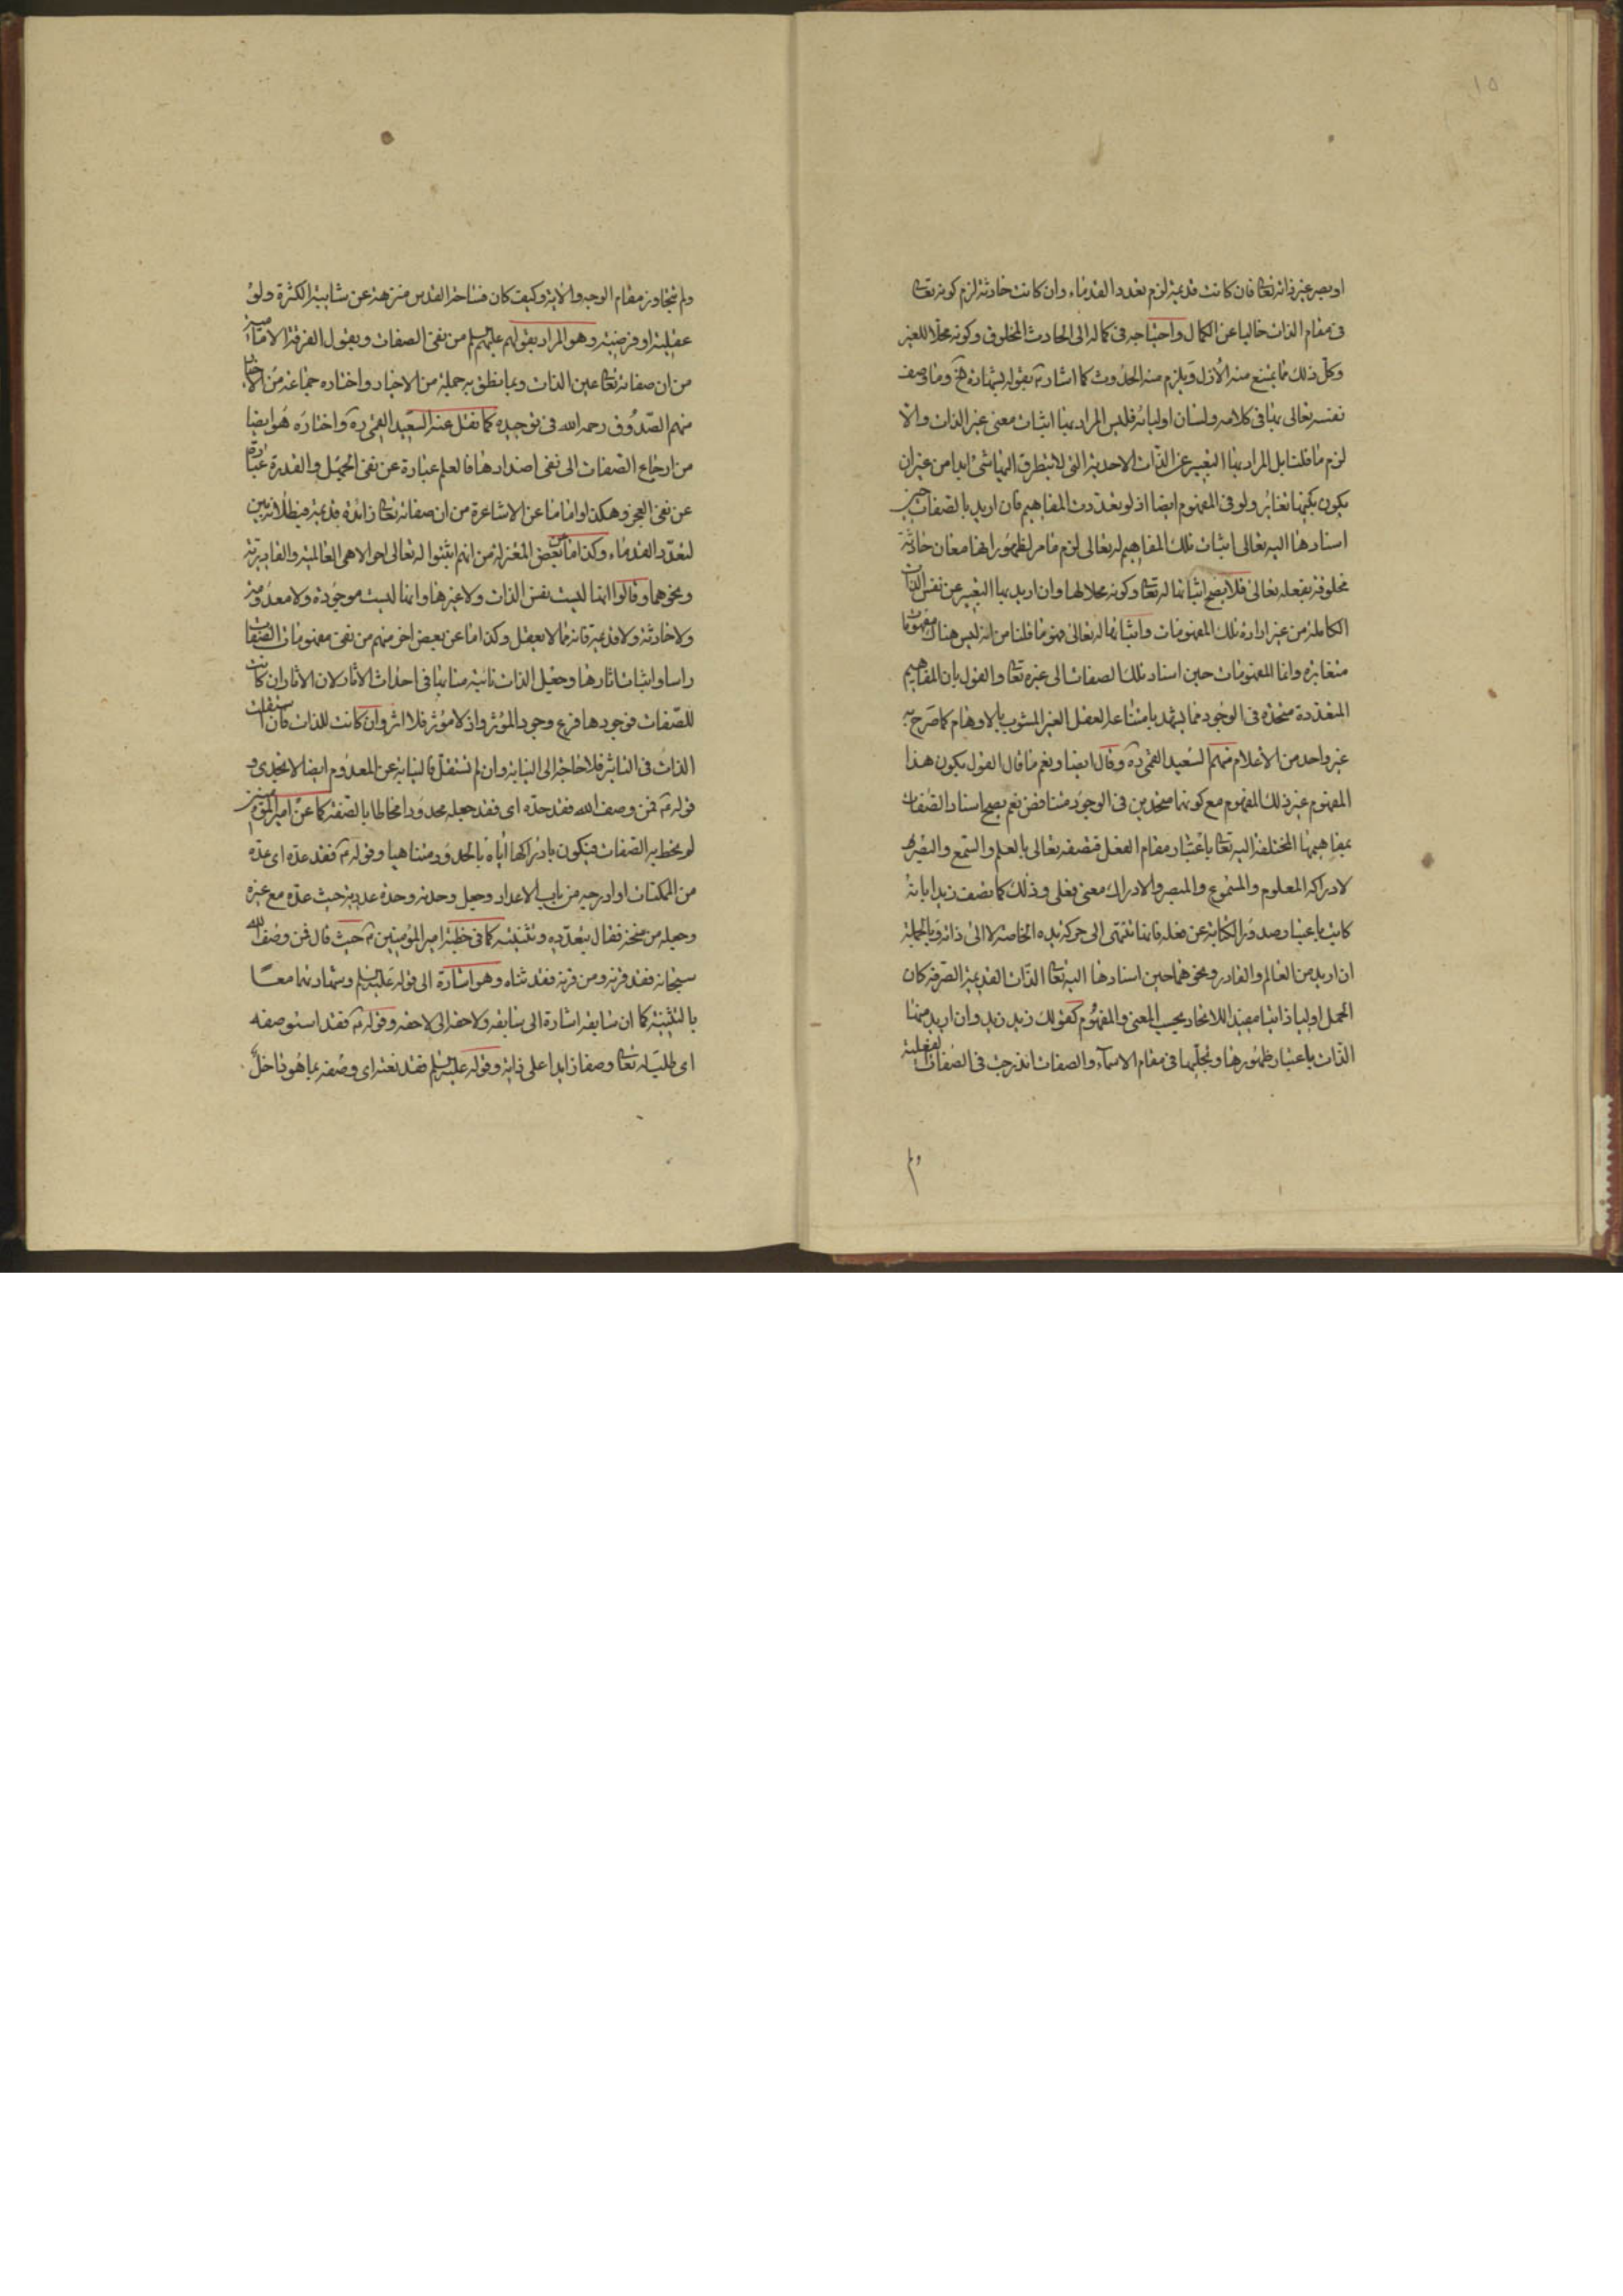 ١٥
او بصر غير ذاته تعا فان كانت قديمة لزم تعدد القدماء وان كانت حادثة لزم كونه تعا
فى مقام الذات خاليا عن الكمال واحتياجه فى كماله الى الحادث المخلوق وكونه محلا للغير
وكل ذلك مما يمتنع منه الأزل ويلزم منه الحدوث كما اشار بقوله بشهادة وما وصف
نفسه تعالى بها فى كلامه ولسان اوليائه فليس المراد بها اثبات معنى غير الذات والا
لزم ما قلنا بل المراد بها التعبير عن الذات الاحدية التى لا يتطرق اليها شئ ابدا من غير ان
يكون بحيثها تغاير ولو فى المفهوم ايضا اذ لو تعددت المفاهيم فان اريد بالصفات حين
اسنادها اليه تعالى اثبات تلك المفاهيم له تعالى لزم ما مر لظهور انها معان حادثة
مخلوقة بفعله تعالى فلا يصح اثباتها له تعا وكونه محلا لها وان اريد بها التعبير عن نفس الذات
الكاملة من غير ارادة تلك المفهومات واثباتها له تعالى فهو ما قلنا من انه ليس هناك مفهومات
متغايرة وانما المفهومات حين اسناد تلك الصفات الى غيره تعا والقول بان المفاهيم
المتعددة متحدة فى الوجود مما يشهد بامتناعه العقل الغير المشوب بالاوهام كما صرح به
غير واحد من الأعلام منهم السعيد القمى ره وقال ايضا ونعم ما قال القول بكون هذا
المفهوم غير ذلك المفهوم مع كونهما متحدين فى الوجود متناقض نعم يصح اسناد الصفات
بمفاهيمها المختلفة اليه تعا باعتبار مقام الفعل فتصفه تعالى بالعلم والسمع والبصر
لادراكه المعلوم والمسموع والمبصر والادراك معنى فعلى وذلك كما تصف زيدا بانه
كاتب باعتبار صدور الكتابة عن فعله فانما تنتهى الى حركة يده الخاصة لا الى ذاته وبالجملة
ان اريد من العالم والقادر ونحوهما حين اسنادها اليه تعا الذات القديمة الصرفة كان
الحمل اوليا ذاتيا مفيدا للاتحاد بحسب المعنى والمفهوم كقولك زيد زيد وان اريد منها
الذات باعتبار ظهورها وتجليها فى مقام الاسماء والصفات اندرجت فى الصفات الفعلية
ولم
ولم تتجاوز مقام الوجه والاية وكيف كان فساحة القدس منزهة عن شايبة الكثرة ولو
عقلية او فرضية وهو المراد بقولهم عليهم السلم من نفى الصفات وبقول الفرقة الامامية
من ان صفاته تعا عين الذات وبما نطق به جملة من الاخبار واختاره جماعة من
منهم الصدوق رحمه الله فى توحيده كما نقل عنه السعيد القمى ره واختاره هو ايضا
من ارجاع الصفات الى نفى اضدادها فالعلم عبارة عن نفى الجهل والقدرة عبارة
عن نفى العجز وهكذا واما ما عن الاشاعرة من ان صفاته تعا زائدة قديمة فبطلانه بين
لتعدد القدماء وكذا ما عن بعض المعتزلة من انهم اثبتوا له تعالى احوالا هى العالمية والقادرية
ونحوهما وقالوا انها ليست نفس الذات ولا غيرها وانها ليست موجودة ولا معدومة
ولا حادثة ولا قديمة فانه مما لا يعقل وكذا ما عن بعض اخر منهم من نفى مفهومات الصفات
راسا واثبات اثارها وجعل الذات نائبة منابها فى احداث الاثار لان الاثار ان كانت
للصفات فوجودها فرع وجود المؤثر واذ لا مؤثر فلا اثر وان كانت للذات فان استقلت
الذات فى التاثير فلا حاجة الى النيابة وان لم تستقل فالنيابة عن المعدوم ايضا لا تجدى و
قوله فمن وصف الله فقد حده اى فقد جعله محدودا محاطا بالصفة كما عن امير المؤمنين
لو يحط به الصفات فيكون بادراكها اياه بالحدود متناهيا وقوله فقد عده اى عده
من الممكنات او ادرجه من باب الاعداد وجعل وحدته وحدة عددية حيث عده مع غيره
وجعله من سنخه فقال بتعدده وتثنيته كما فى خطبة امير المؤمنين حيث قال فمن وصف الله
سبحانه فقد قرنه ومن قرنه فقد ثناه وهو اشارة الى قوله عليه السلم وشهادتهما معا
بالتثنية كما ان سابقه اشارة الى سابقه ولاحقه الى لاحقه وقوله فقد استوصفه
اى طلب له تعا وصفا زايدا على ذاته وقوله عليه السلم فقد نعته اى وصفه بما هو داخل